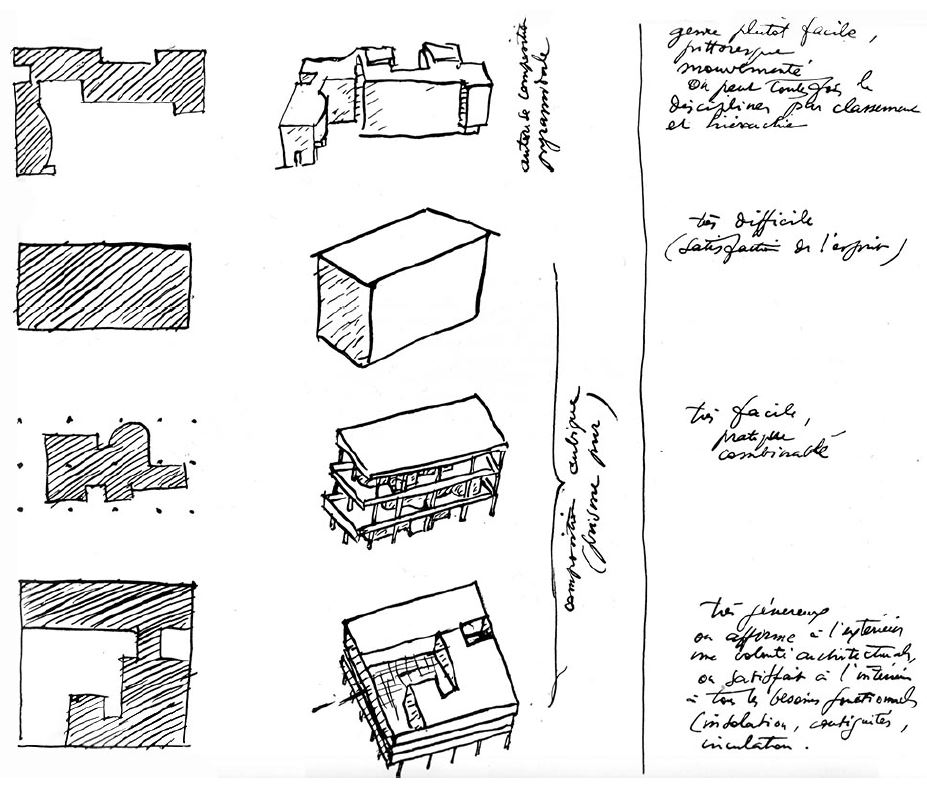 genre plutôt facile,
pittoresque
mouvementé
On peut toutefois le
discipliner par classement
et hiérarchie
autour de composition
pyramidale
très difficile
(satisfaction de l'esprit)
très facile,
pratique
combinable
composition cubique
(prisme pur)
très généreux
on affirme à l'extérieur
une volonté architecturale,
on satisfait à l'intérieur
à tous les besoins fonctionnels
(insolation, contiguités,
circulation.